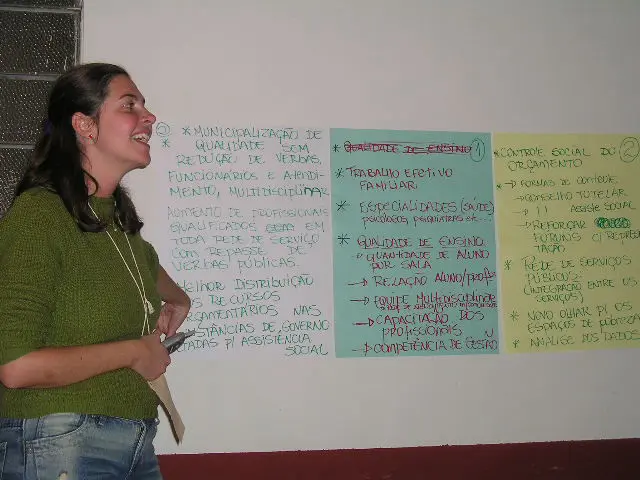 ② * MUNICIPALIZAÇÃO DE
* QUALIDADE SEM
REDUÇÃO DE VERBAS,
FUNCIONÁRIOS E ATENDI-
MENTO, MULTIDISCIPLINAR
AUMENTO DE PROFISSIONAIS
QUALIFICADOS EM
TODA REDE DE SERVIÇO
COM REPASSE DE
VERBAS PÚBLICAS.
MELHOR DISTRIBUIÇÃO
RECURSOS
NAS
DE GOVERNO
P/ ASSISTÊNCIA
SOCIAL
* QUALIDADE DE ENSINO ①
* TRABALHO EFETIVO
FAMILIAR
* ESPECIALIDADES (SAÚDE)
PSICÓLOGOS, PSIQUIATRAS ETC...
* QUALIDADE DE ENSINO
→ QUANTIDADE DE ALUNO
POR SALA
→ RELAÇÃO ALUNO/PROFº
→ EQUIPE MULTIDISCIPLINAR
→ CAPACITAÇÃO DOS
PROFISSIONAIS
→ COMPETÊNCIA DE GESTÃO
* CONTROLE SOCIAL DO ②
ORÇAMENTO
* → FORMAS DE CONTROLE
→ CONSELHO TUTELAR
→ " ASSISTE SOCIAL
→ REFORÇAR
FORUNS C/ REPRESEN
TAÇÃO
* REDE DE SERVIÇOS
PÚBLICOS
(INTEGRAÇÃO ENTRE OS
SERVIÇOS)
* NOVO OLHAR P/ OS
ESPAÇOS DE POBREZA
* ANÁLISE DOS DADOS